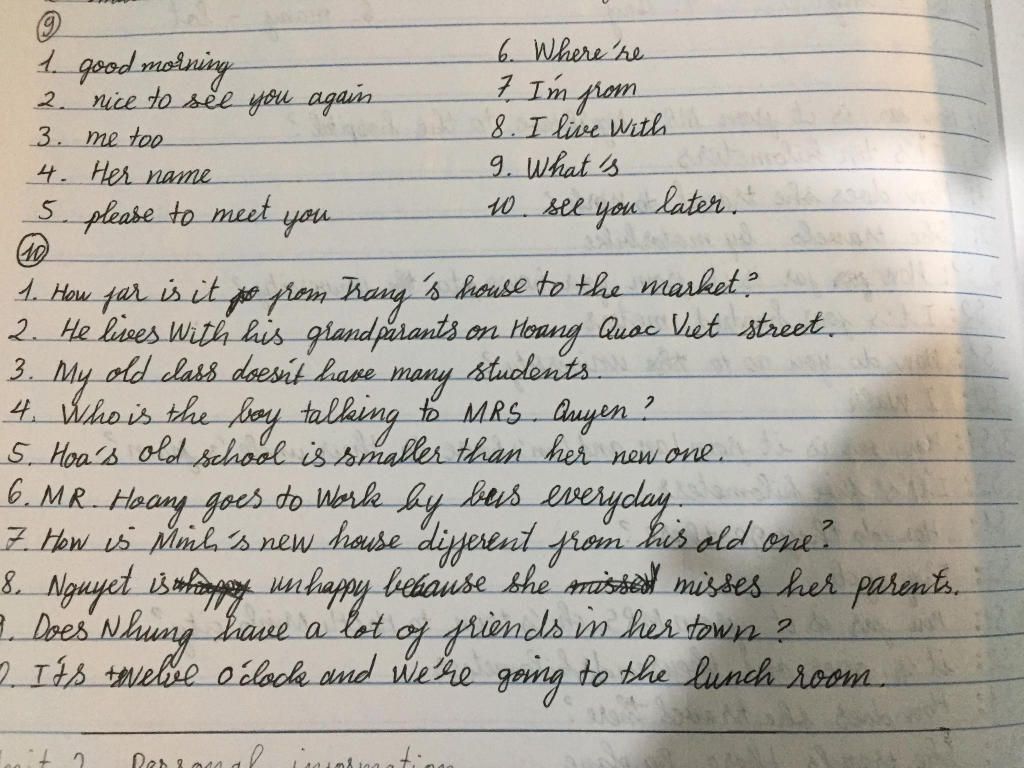 9
1. good morning
2. nice to see you again
3. me too
4. Her name
5. please to meet you
6. Where're
7. I'm from
8. I live With
9. What's
10. see you later.
10
1. How far is it from Trang's house to the market?
2. He lives With his grandparants on Hoang Quoc Viet street.
3. My old class doesn't have many students.
4. Who is the boy talking to MRS. Quyen?
5. Hoa's old school is smaller than her new one.
6. MR. Hoang goes to Work by bus everyday.
7. How is Minh's new house different from his old one?
8. Nguyet is unhappy because she misses her parents.
9. Does Nhung have a lot of friends in her town?
0. It's twelve o'clock and We're going to the lunch room.
nit 2 Personal information